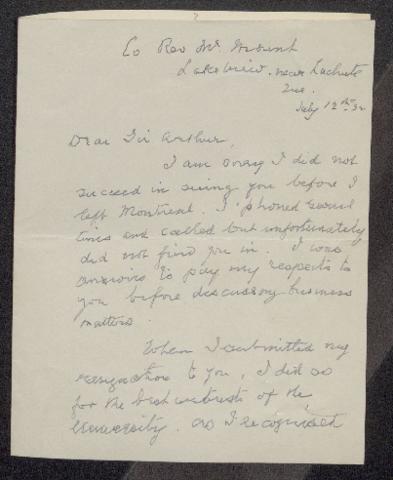 c/o Rev Mr. Mount
Lakeview, near Lachute
Que.
July 12th 32
Dear Sir Arthur,
I am sorry I did not
succeed in seeing you before I
left Montreal. I 'phoned several
times and called but unfortunately
did not find you in. I was
anxious to pay my respects to
you before discussing business
matters.
When I submitted my
resignation to you, I did so
for the best interests of the
University. As I recognised